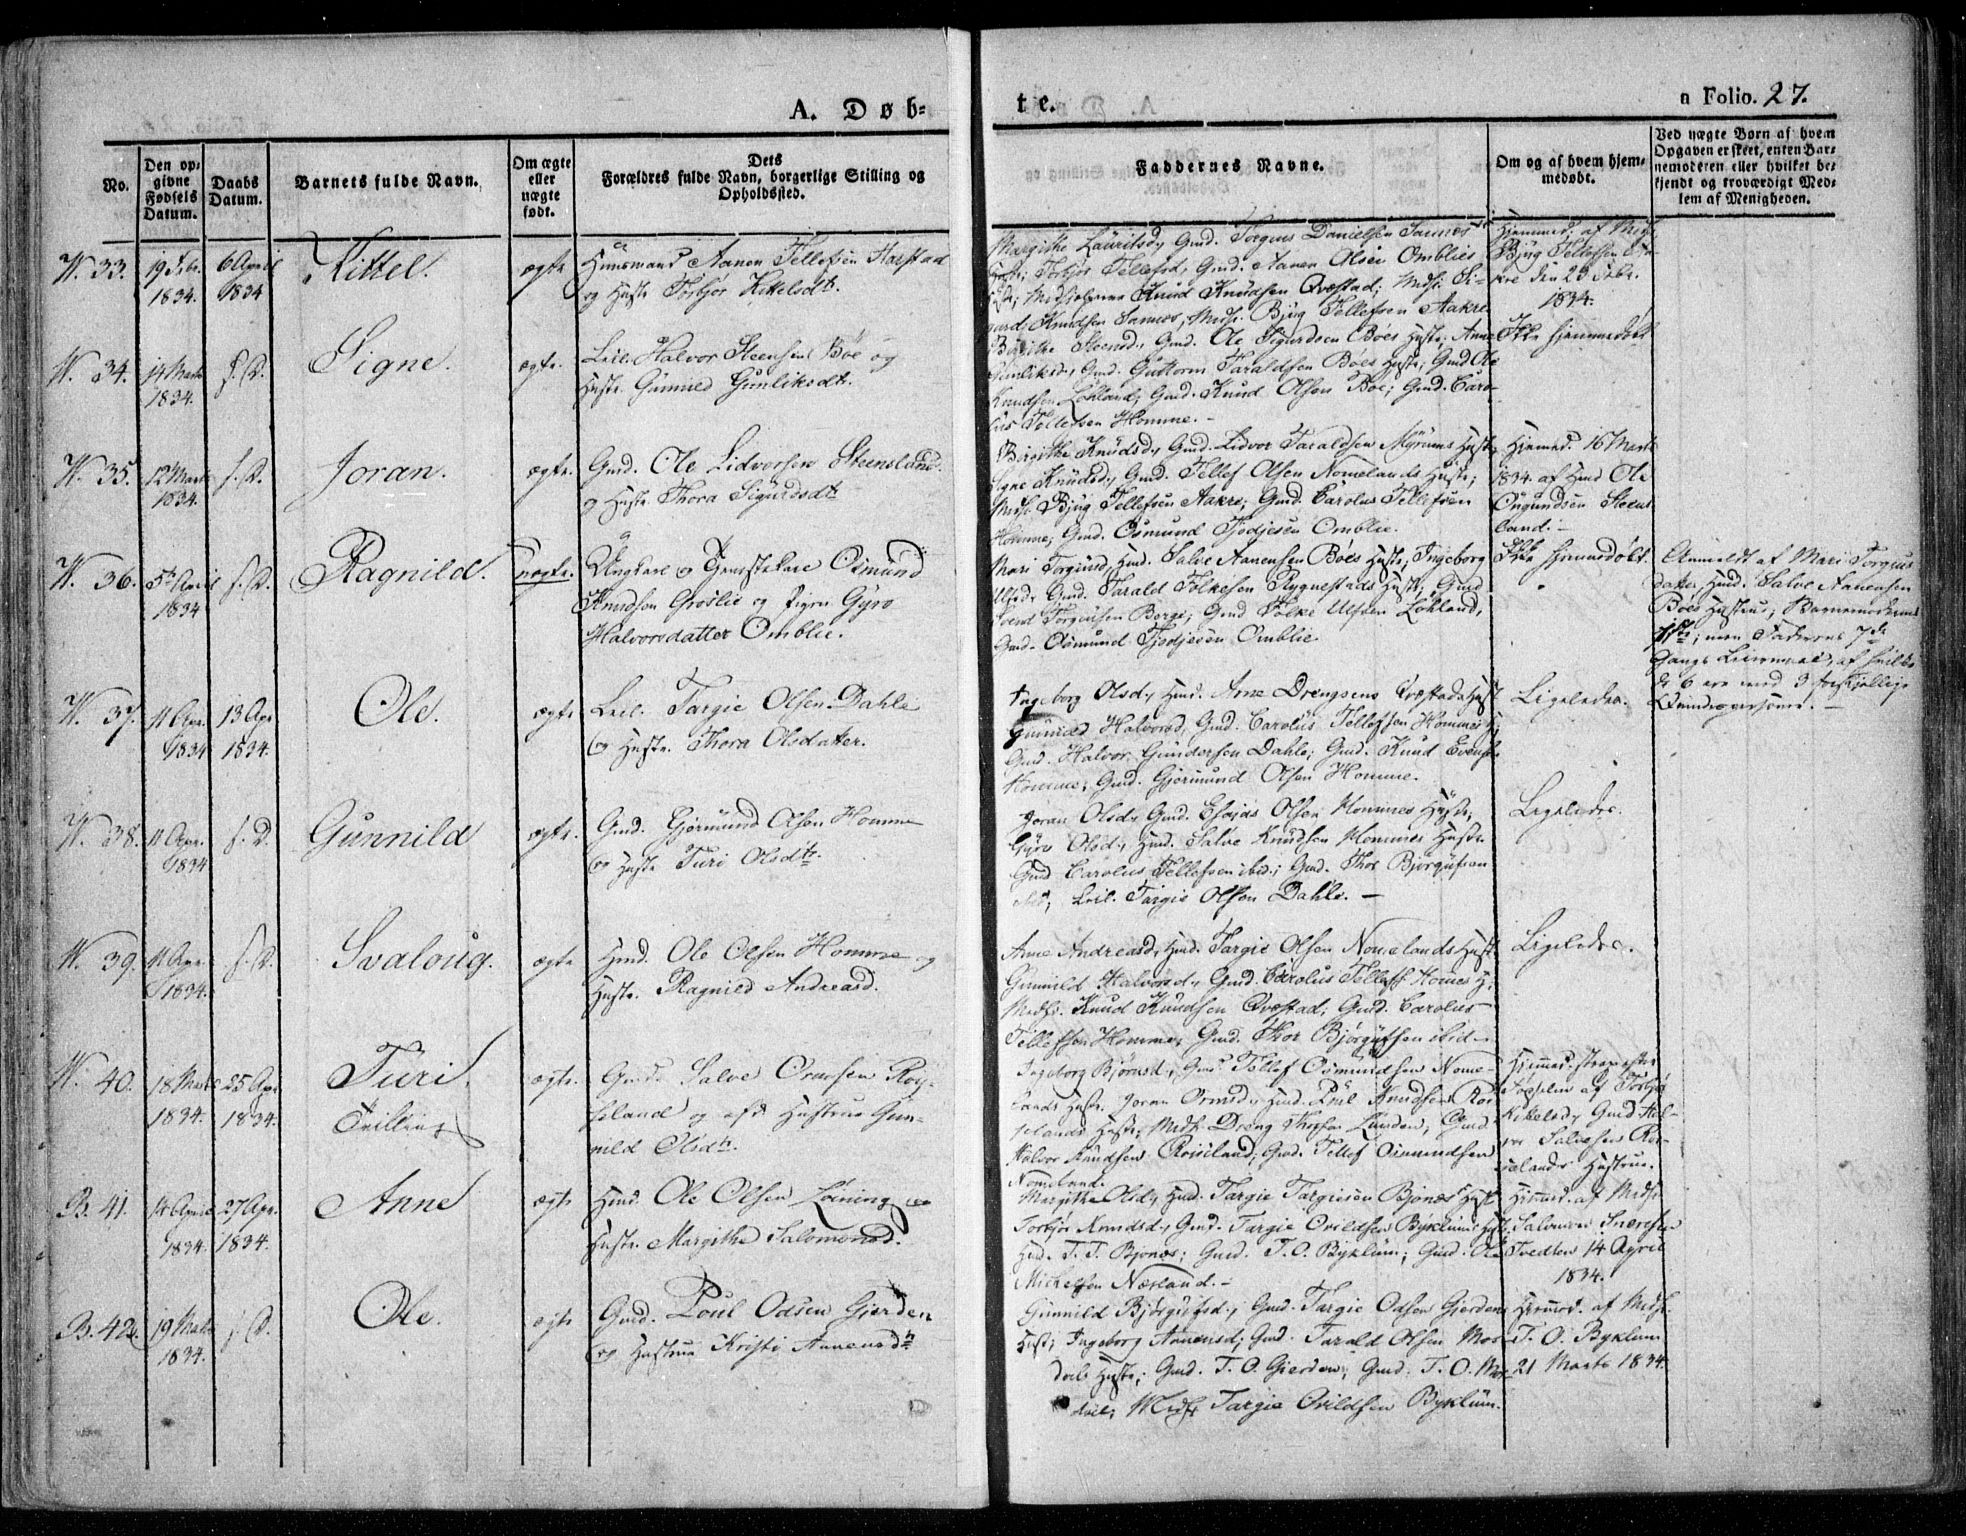 A. Døb-
te.
n Folio. 27.
No.
Den op-
givne
Fødsels
Datum.
Daabs
Datum.
Barnets fulde Navn.
Om ægte
eller
uægte
født.
Dets
Forældres fulde Navn, borgerlige Stilling og
Opholdssted.
Faddernes Navne.
Om og af hvem hjem-
medøbt.
Ved uægte Børn af hvem
Opgaven er skeet, enten Bar-
nemoderen eller hvilket be-
kjendt og troværdigt Med-
lem af Menigheden.
33.
19 Febr.
1834.
6 April
1834
Kittel.
ægte
Huusmand Aanen Tellefsen Harstad
og Hustr. Torbjør Kittelsdtr.
Margithe Lauritsd., Gmd. Torgius Danielsen
Hustr; Torbjør Tellefsd, Gmd. Aanen Olsei Omblies
Hustr; Medhjelperne Knud Knudsen Qvestad; Medhj. Si-
gurd Knudsen; Medhj. Bjug Tellefsen Aakre
Hjemmed. af Medhj.
Bjug Tellefsen Aa-
kre den 23 Febr.
1834.
34.
14 Marts
1834.
s. D.
Signe.
ægte.
Leil. Halvor Steensen Bøe og
Hustr. Gunnild Gunliksdtr.
Birgithe Steensd., Gmd. Ole Sigurdsen Bøes Hustr; Anne
Gunliksd., Gmd. Guttorm Taraldsen Bøes Hustr; Gmd Ole
Knudsen Løkland; Gmd. Knud Olsen Bøe; Gmd. Caro-
lus Tellefsen Homme. -
Ikke hjemmedøbt.
35.
12 Marts
1834.
s. D.
Joran.
ægte.
Gmd. Ole Lidvorsen Steensland
og Hustr Thora Sigurdsdtr.
Birgithe Knudsd., Gmd. Lidvor Taraldsen Myrums Hustr,
Signe Knudsd., Gmd. Tellef Olsen Nomelands Hustr;
Medhj. Bjug Tellefsen Aakre; Gmd. Carolus Tellefsen
Homme; Gmd. Osmund Tjodjesen Omblie.
Hjemmed. 16 Marts
1834 af Hmd Ole
Ongundsen Steens-
land. -
36.
5te April
1834
s. D.
Ragnild.
uægte.
Ungkarl og Osmund
Knudsen Groslie og Pigen Gyro
Halvorsdatter Omblie.
Mari Torgiusd, Hmd. Salve Aanensen Bøes Hustr, Ingeborg
Ulfsd, Gmd. Tarald Folkesen Rygnestads Hustr, Gmd
Svend Torgiusen Berge; Gmd Folke Ulfsen Løkland,
Gmd. Osmund Tjodjesen Omblie.
Ikke hjemmedøbt
Anmeldt af Mari Torgius
datter, Hmd. Salve Aanensen
Bøes Hustrue; Barnemoderens
1ste; men Faderens 7de
Gangs Leiermaal, af hvilke
de 6 ere med 3 forskjellige
Qvindespersoner. -
37.
11 Apr.
1834
13 Apr
1834.
Ole.
ægte
Leil. Targie Olsen Dahle
og Hustr. Thora Olsdatter.
Ingeborg Olsd., Hmd. Arne Drengsens Qvestads Hust
Gunnild Halvorsd, Gmd. Carolus Tellefsen Hommes H;
Gmd. Halvor Gundersen Dahle; Gmd. Knud Evens
Homme; Gmd. Gjermund Olsen Homme.
Ligeledes.
38.
11 Apr.
1834
s. D.
Gunnild
ægte.
Gmd. Gjermund Olsen Homme
og Hustr Turi Olsdtr.
Joran Olsd., Gmd. Olsen Hommes Hustr,
Gyro Olsd., Hmd. Salve Knudsen Hommes Hustr.
Gmd Carolus Tellefsen ibid.; Gmd. Thor Bjørgufsen
ibid; Leil. Targie Olsen Dahle. -
Ligeledes.
39.
11 Apr.
1834.
s. D.
Svaloug.
ægte
Hmd. Ole Olsen Homme og
Hustr. Ragnild Andreasd.
Anne Andreasd, Hmd. Targie Olsen Nomelands Hust
Gunnild Halvorsd., Gmd. Carolus Tellefs. Homes H;
Medhj. Knud Knudsen Qvestad; Gmd. Carolus
Tellefsen Homme; Gmd. Thor Bjørgufsen ibid -
Ligeledes.
40.
18 Marts
1834.
25 Apr
1834.
Turi.
Tvilling
ægte.
Gmd. Salve Ormsen Roy-
seland og afd. Hustrue Gun-
nild Olsdtr.
Ingeborg Bjørnsd., Gmd. Tellef Osmundsen Nome-
lands Hustr. Joran Ormsd., Hmd. Poul Knudsen Roi-
selands Hustr; Medhj Dreng Thorsen Lunden; Gmd
Halvor Knudsen Roiseland; Gmd. Tellef Osmundsen
Nomeland.
Hjemmed. strax efter
Fødselen af Torbjør
Kikelsd., Gmd. Hal-
vor Salvesen Roi-
selands Hustrue.
B. 41.
14 April
1834.
27 Apr.
1834.
Anne
ægte
Hmd. Ole Olsen Løining og
Hustr. Margithe Salomonsd.
Margithe Olsd., Hmd. Targie Targiesen Bjonæs Hust
Torbjør Knudsd., Gmd. Targie Ovildsen Byklums Hust
Hmd. T. T. Bjonæs; Gmd. T. O. Byklum; Gmd. Ole
Mickelsen Næsland. -
Hjemmed. af Medhj.
Salomon
Tvedten 14 April
1834.
B. 42.
19 Marts
1834.
s. D.
Ole.
ægte
Gmd. Poul Odsen Gjerden
og Hustrue Kristi Aanensdtr
Gunnild Bjørgufsd., Gmd. Targie Odsen Gjerdens
Hustr, Ingeborg Aanensd; Gmd. Tarald Olsen Mos-
dals Hustr; Gmd. T. O. Gjerden; Gmd. T. O. Mos-
dal; Medhj Targie Ovildsen Byklum.
Hjemmed. af Medhj.
T. O. Byklum
21 Marts 1834.